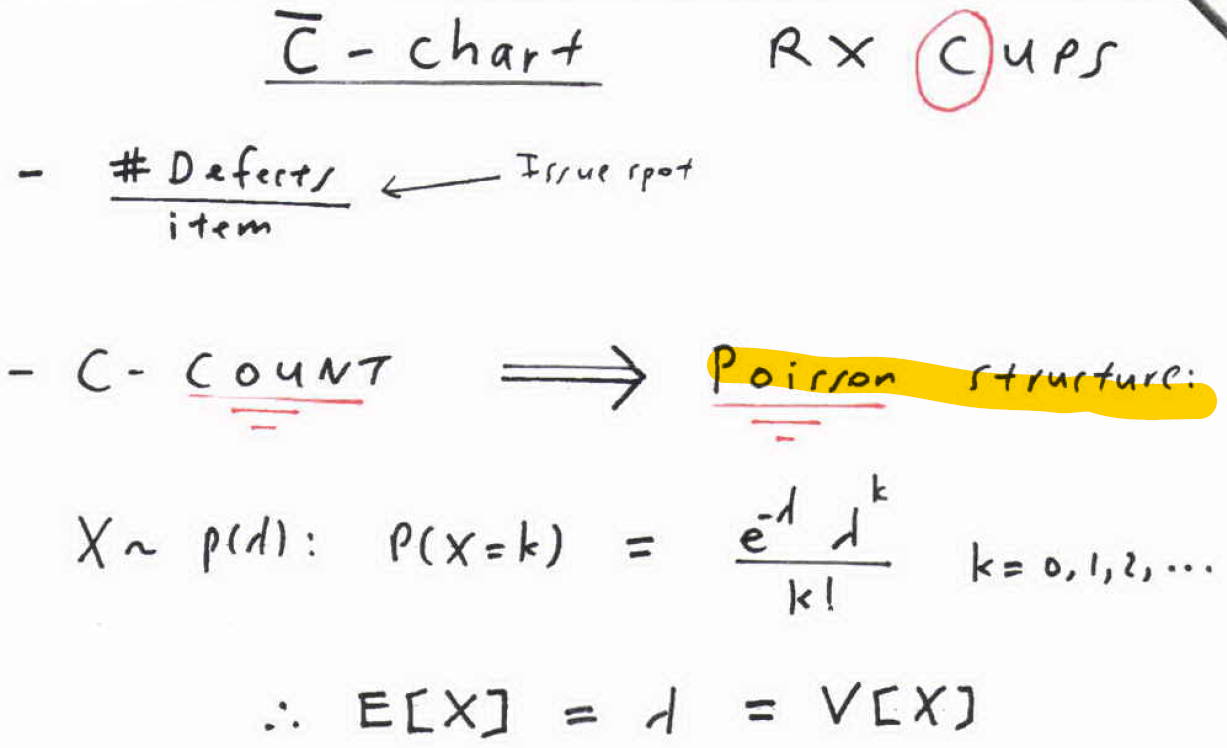 C̅ - chart RX CUPS
- # Defects / item ← Issue spot
- C - COUNT ⟹ Poisson structure:
X ~ p(λ): P(X=k) = e^-λ λ^k / k! k = 0, 1, 2, ...
∴ E[X] = λ = V[X]